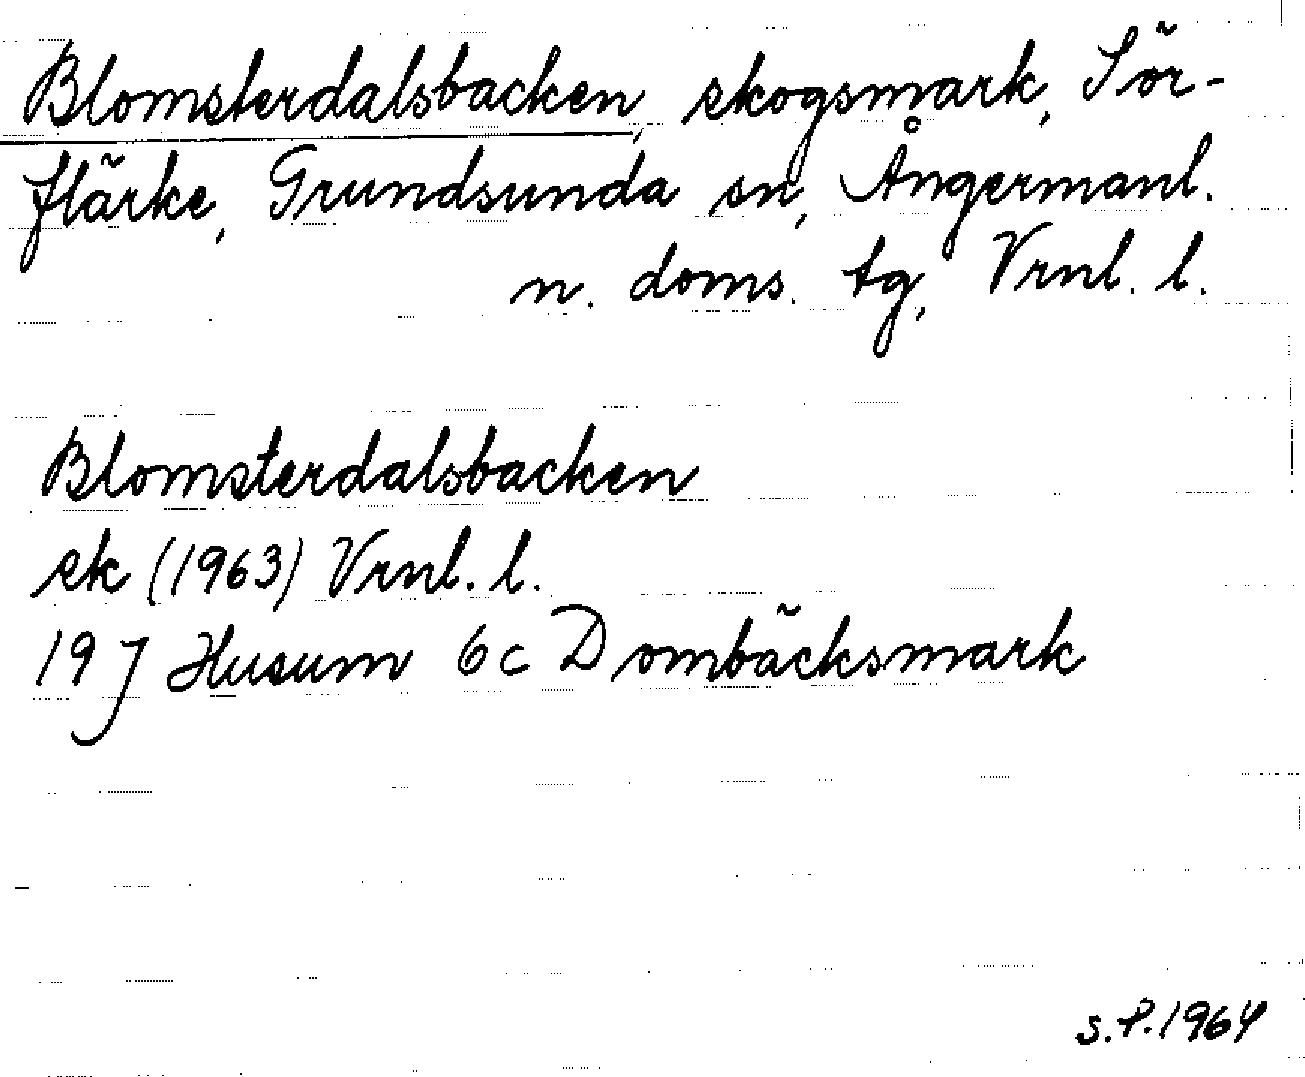 Blomsterdalsbacken, skogsmark, Sör-
flärke, Grundsunda sn, Ångermanl.
n. doms. tg, Vrnl. l.
Blomsterdalsbacken
sk (1963) Vrnl. l.
19 J Husum 6c Dombäcksmark
S.P. 1964